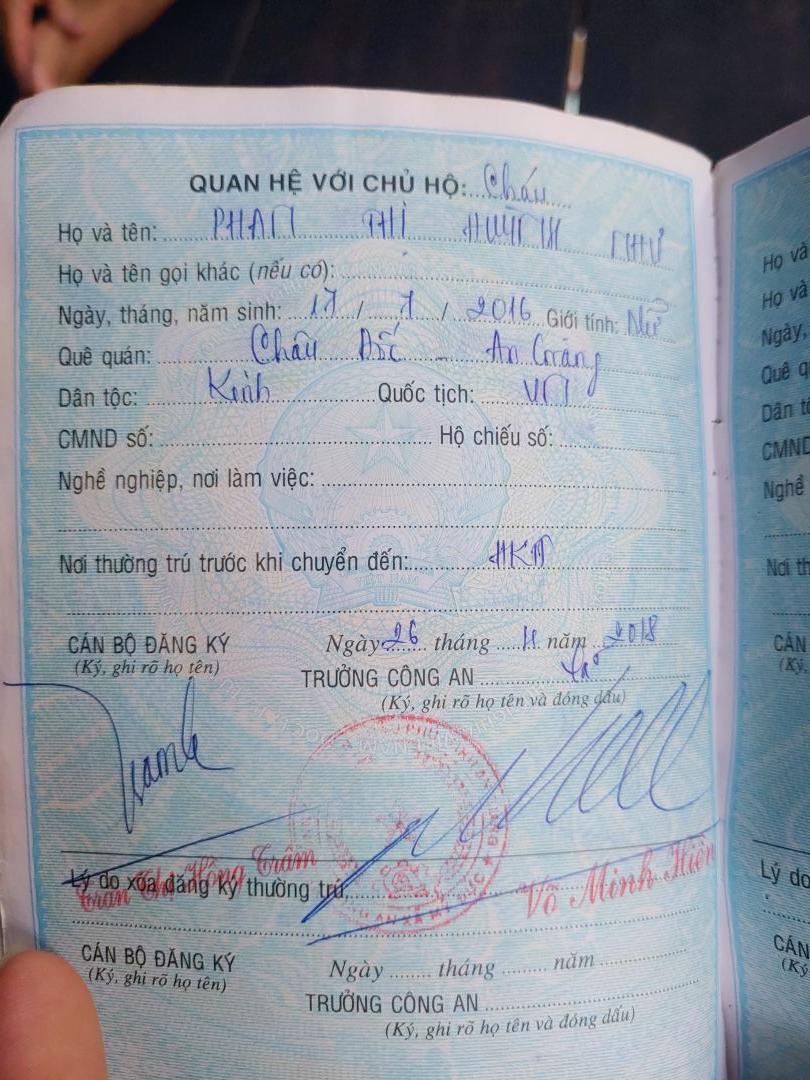 QUAN HỆ VỚI CHỦ HỘ: Cháu
Họ và tên: PHAN THỊ HUỲNH NHƯ
Họ và tên gọi khác (nếu có):
Ngày, tháng, năm sinh: 17 / 7 / 2016 Giới tính: Nữ
Quê quán: Châu Đốc - An Giang
Dân tộc: Kinh Quốc tịch: VN
CMND số: Hộ chiếu số:
Nghề nghiệp, nơi làm việc:
Nơi thường trú trước khi chuyển đến:
CÁN BỘ ĐĂNG KÝ
(Ký, ghi rõ họ tên)
Ngày 26 tháng 11 năm 2018
TRƯỞNG CÔNG AN
(Ký, ghi rõ họ tên và đóng dấu)
Trần Thị Hồng Trâm
Võ Minh Hiền
Lý do xóa đăng ký thường trú
CÁN BỘ ĐĂNG KÝ
(Ký, ghi rõ họ tên)
Ngày tháng năm
TRƯỞNG CÔNG AN
(Ký, ghi rõ họ tên và đóng dấu)
Họ và
Họ và
Ngày,
Quê q
Dân tộ
CMND
Nghề
Nơi th
CÁN
(Ký,
Lý do
CÁN
(Ký,